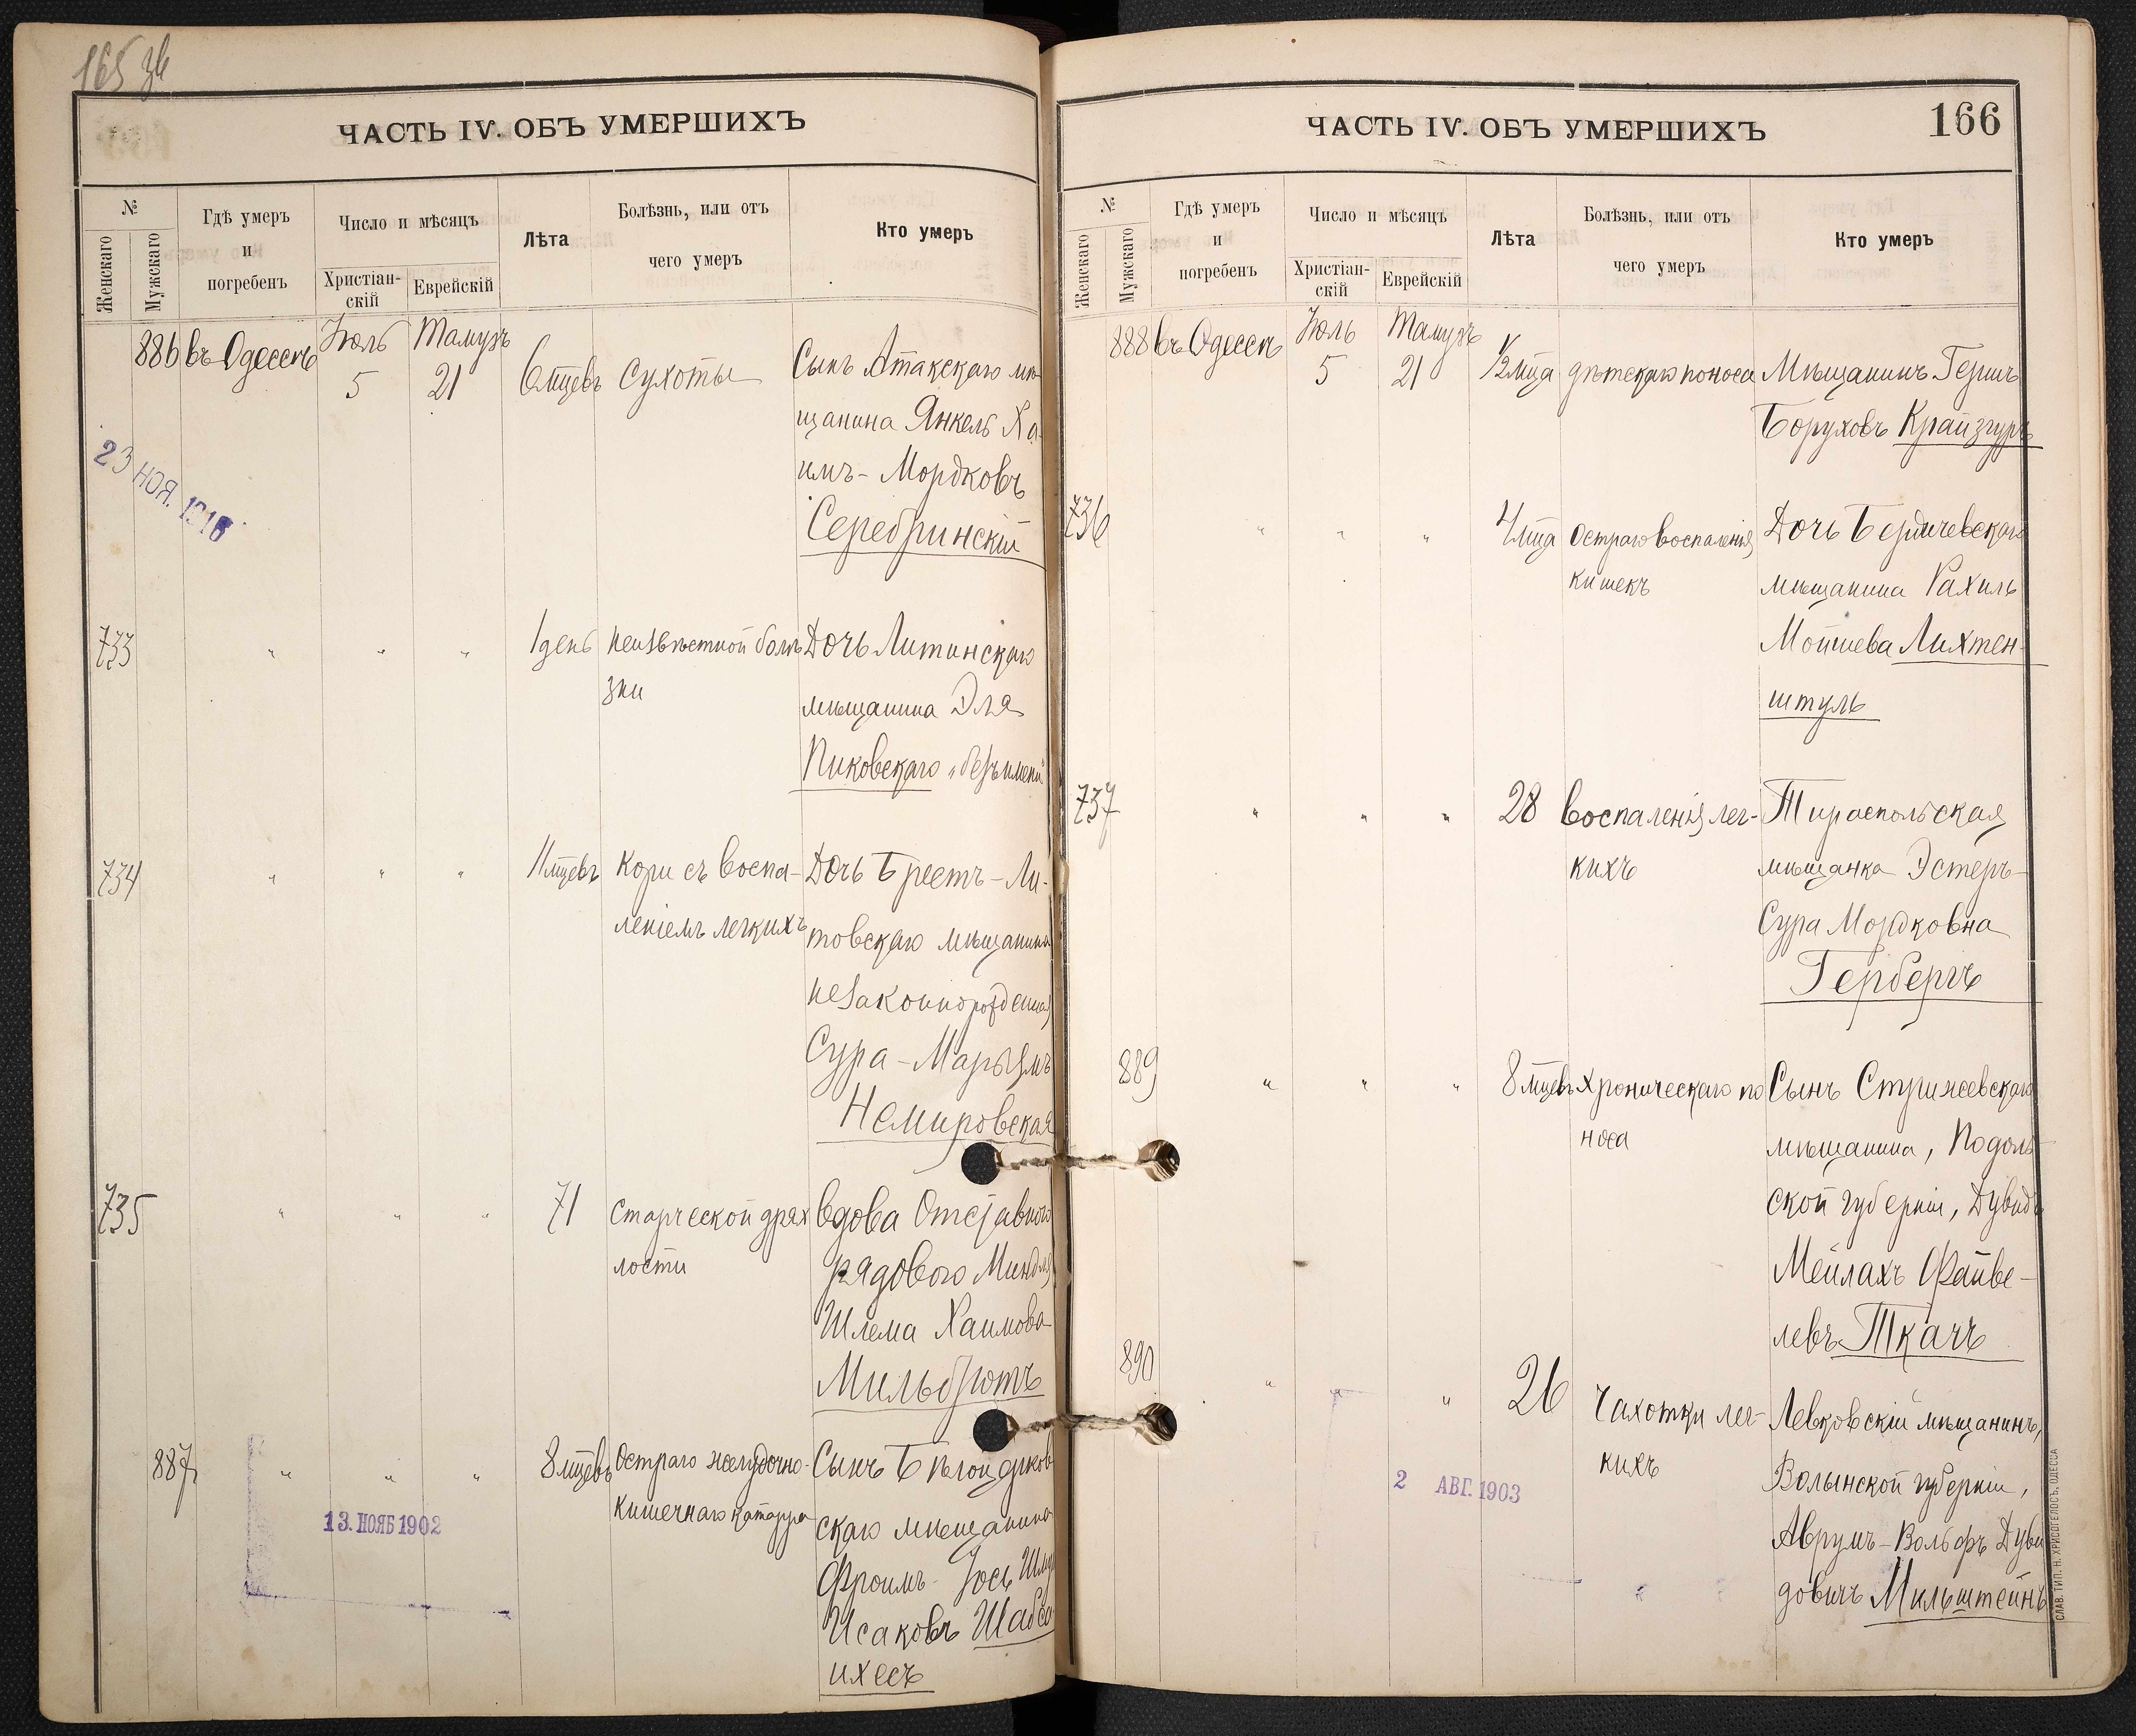 165 зв
ЧАСТЬ IV. ОБЪ УМЕРШИХЪ
№
Женскаго
Мужскаго
Гдѣ умеръ
и
погребенъ
Число и мѣсяцъ
Христіан-
скій
Еврейскій
Лѣта
Болѣзнь, или отъ
чего умеръ
Кто умеръ
886 въ Одессѣ Іюль 5 Тамузъ 21 6 мцевъ Сухоты Сынъ Атакскаго мѣ-
щанина Янкель Ха-
имъ-Мордковъ
Серебринскій
23 НОЯ. 1916
733 " " " 1 день неизвѣстной болѣ Дочь Литинскаго
зни мѣщанина Эля
Пиковскаго „безъ имени"
734 " " " 11 мцевъ Кори съ воспа- Дочь Брестъ-Ли-
леніемъ легкихъ товскаго мѣщанина
незаконнорожденная
Сура-Марьямъ
Немировская
735 " " " 71 Старческой дрях Вдова Отставного
лости рядового Миндля
Шлема Хаимова
Мильбротъ
887 " " " 8 мцевъ Остраго желудочно- Сынъ Бѣлоцерков
кишечнаго катарра скаго мѣщанина
Фроимъ-Іось Шму
Исаковъ Шабса
ихесъ
13. НОЯБ 1902
ЧАСТЬ IV. ОБЪ УМЕРШИХЪ
166
№
Женскаго
Мужскаго
Гдѣ умеръ
и
погребенъ
Число и мѣсяцъ
Христіан-
скій
Еврейскій
Лѣта
Болѣзнь, или отъ
чего умеръ
Кто умеръ
888 въ Одессѣ Іюль 5 Тамузъ 21 1/2 мца дѣтскаго поноса Мѣщанинъ Гершъ
Боруховъ Крайзгуръ
736 " " " 4 мца Остраго воспаленія Дочь Бердичевскаго
кишекъ мѣщанина Рахиль
Мошиева Лихтен-
штуль
737 " " " 28 Воспаленія лег- Тираспольская
кихъ мѣщанка Эстеръ-
Сура Мордковна
Герберъ
889 " " " 8 мцевъ Хроническаго по Сынъ Стрижевскаго
носа мѣщанина, Подоль
ской губерніи, Дувидъ
Мейлахъ Файве-
левъ Ткачъ
890 " " " 26 Чахотки лег- Левковскій мѣщанинъ,
кихъ Волынской губерніи,
Аврумъ-Вольфъ Дуви
довичъ Мильштейнъ
2 АВГ. 1903
СЛАВ. ТИП. Н. ХРИСОГЕЛОСЪ, ОДЕССА